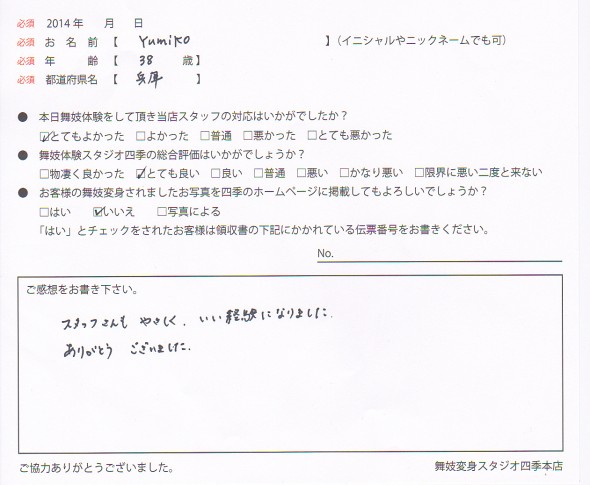 必須 2014 年 月 日
必須 お 名 前 【 Yumiko 】(イニシャルやニックネームでも可)
必須 年 齢 【 38 歳】
必須 都道府県名 【 兵庫 】
● 本日舞妓体験をして頂き当店スタッフの対応はいかがでしたか？
☑とてもよかった □よかった □普通 □悪かった □とても悪かった
● 舞妓体験スタジオ四季の総合評価はいかがでしょうか？
□物凄く良かった ☑とても良い □良い □普通 □悪い □かなり悪い □限界に悪い二度と来ない
● お客様の舞妓変身されましたお写真を四季のホームページに掲載してもよろしいでしょうか？
□はい ☑いいえ □写真による
「はい」とチェックをされたお客様は領収書の下記にかかれている伝票番号をお書きください。
No.
ご感想をお書き下さい。
スタッフさんも やさしく、いい経験になりました.
ありがとう ございました.
ご協力ありがとうございました。
舞妓変身スタジオ四季本店